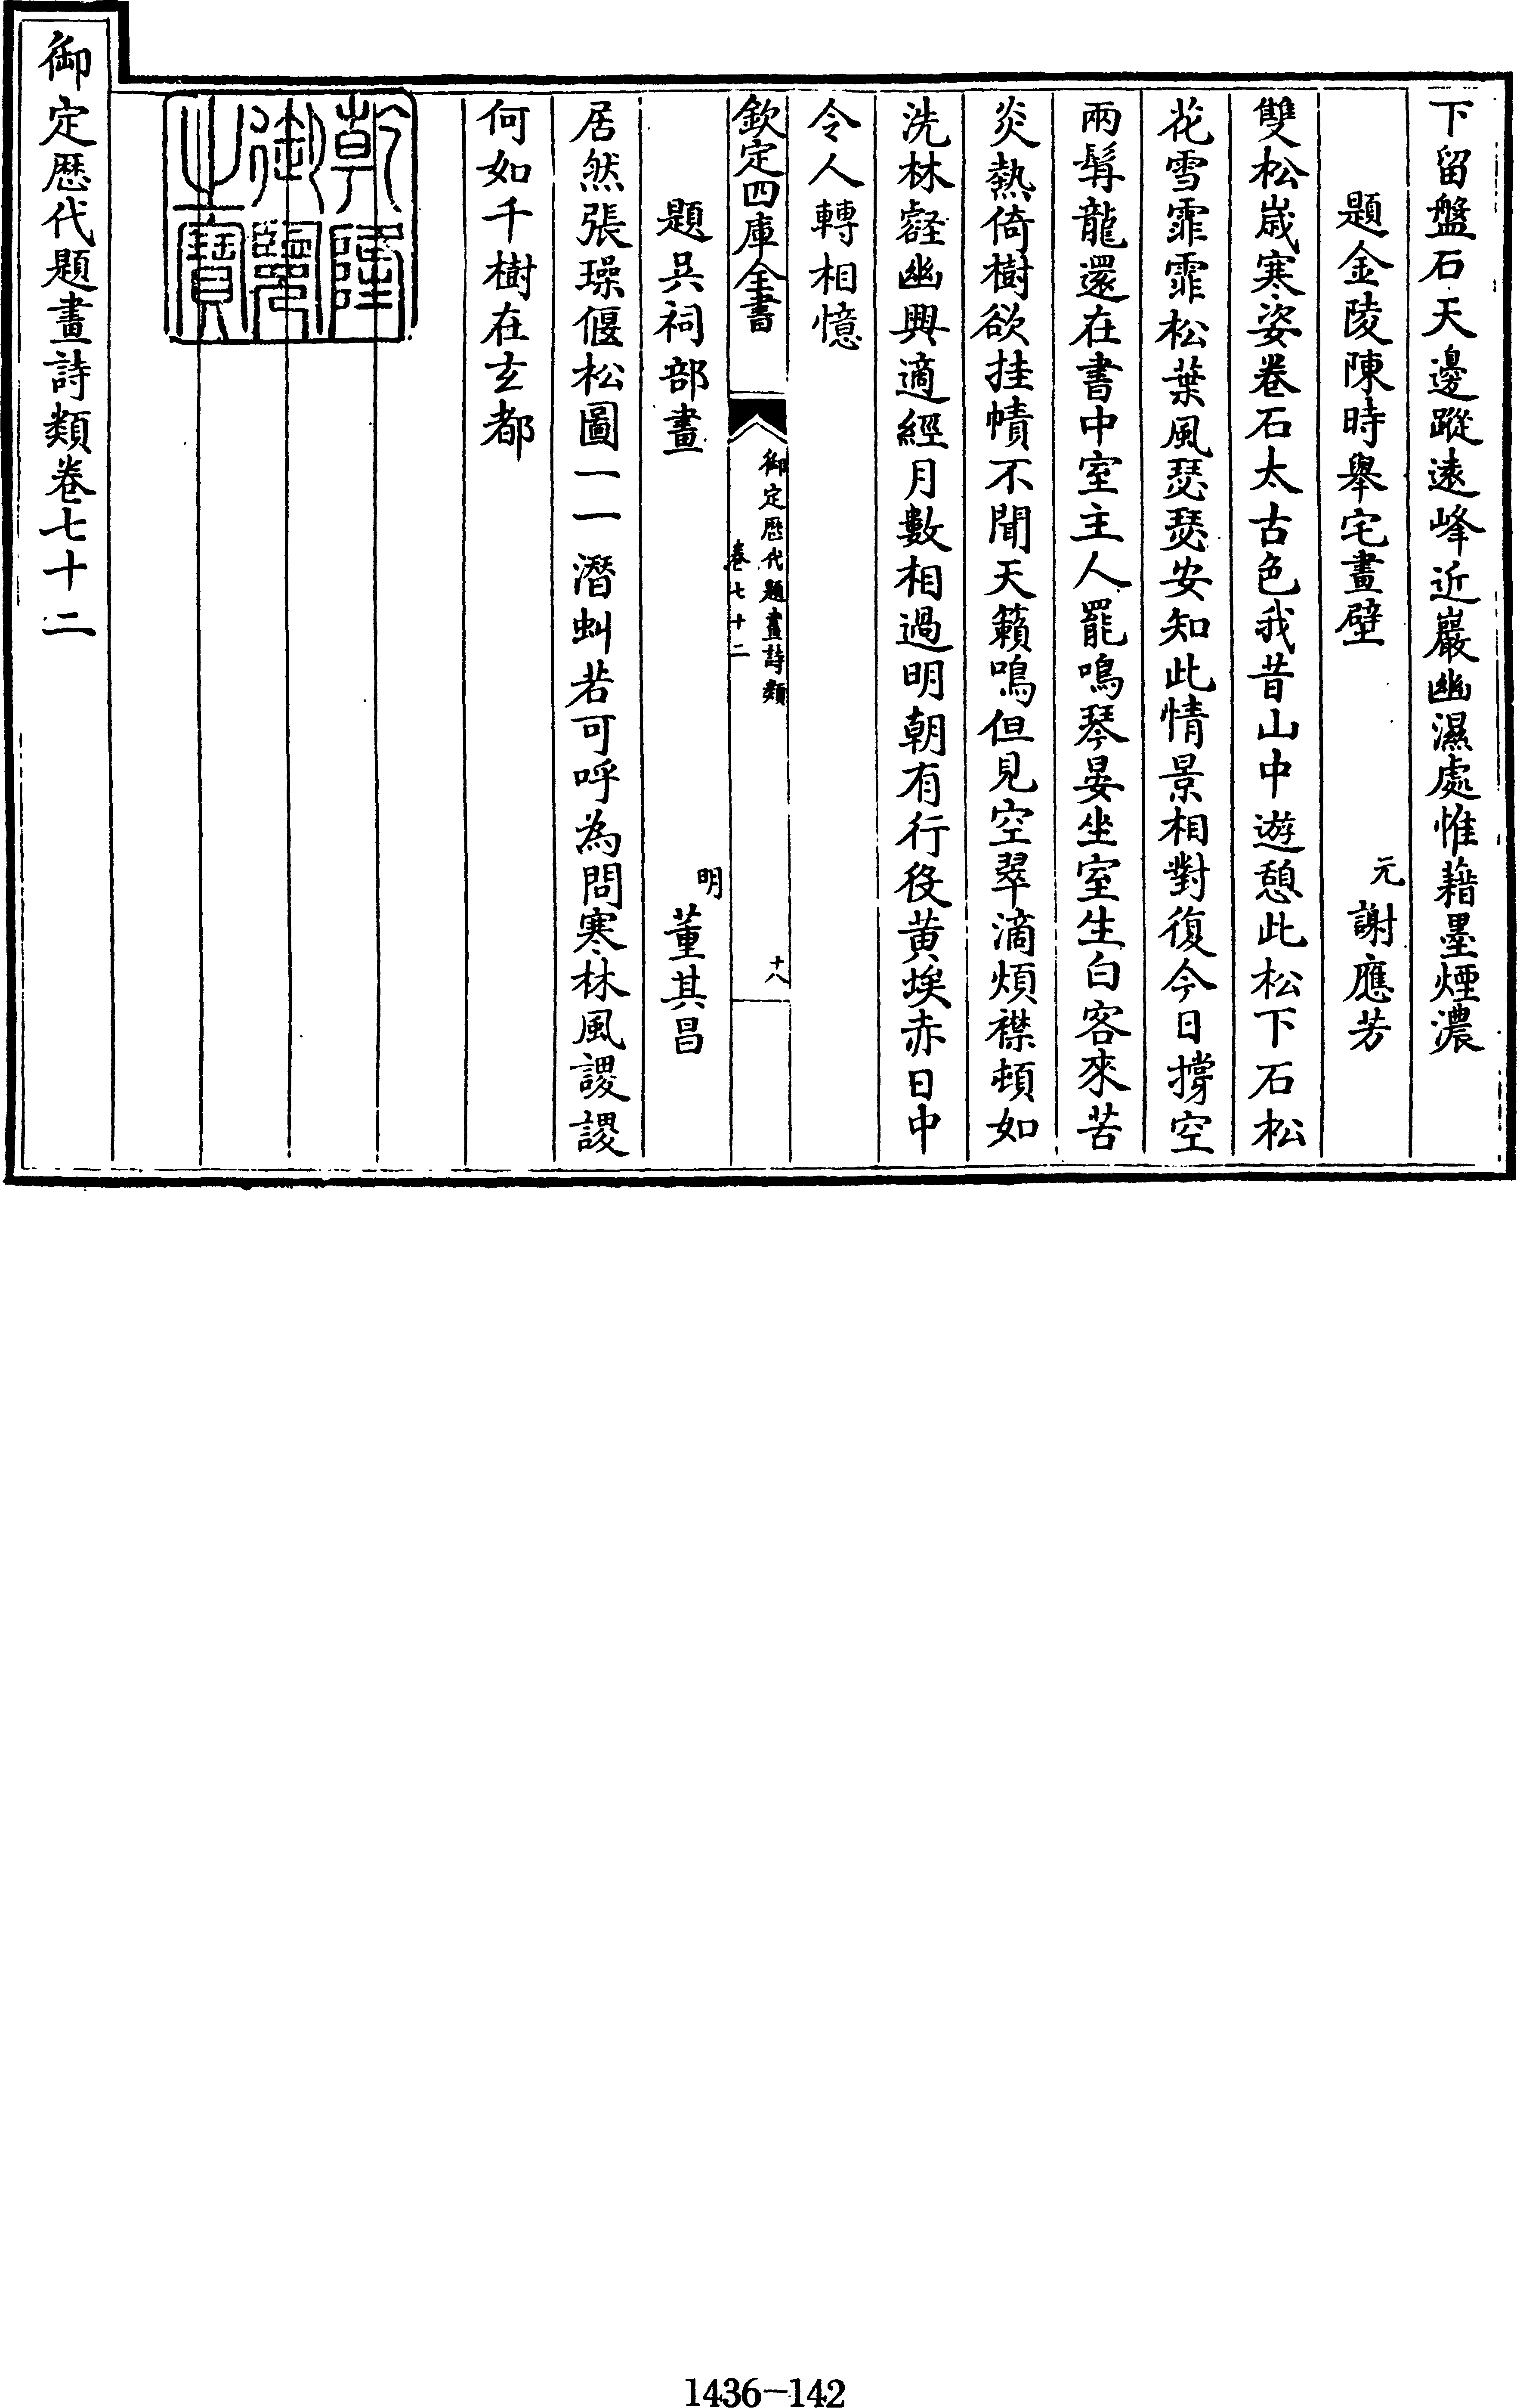 下留盤石天邊蹤遠峰近巖幽濕處惟藉墨煙濃
題金陵陳時舉宅畫壁
元
謝應芳
雙松嵗寒姿卷石太古色我昔山中遊憩此松下石松
花雪霏霏松葉風瑟瑟安知此情景相對復今日撐空
兩髯龍還在書中室主人罷鳴琴晏坐室生白客來苦
炎熱倚樹欲挂幘不聞天籟鳴但見空翠滴煩襟頓如
洗林壑幽興適經月數相過明朝有行役黄埃赤日中
令人轉相憶
欽定四庫全書
御定歴代題畫詩類
卷七十二
十八
題呉祠部畫
明
董其昌
居然張璪偃松圖一一潛虯若可呼為問寒林風謖謖
何如千樹在玄都
乾隆
御覽
之寶
御定歴代題畫詩類卷七十二
1436-142